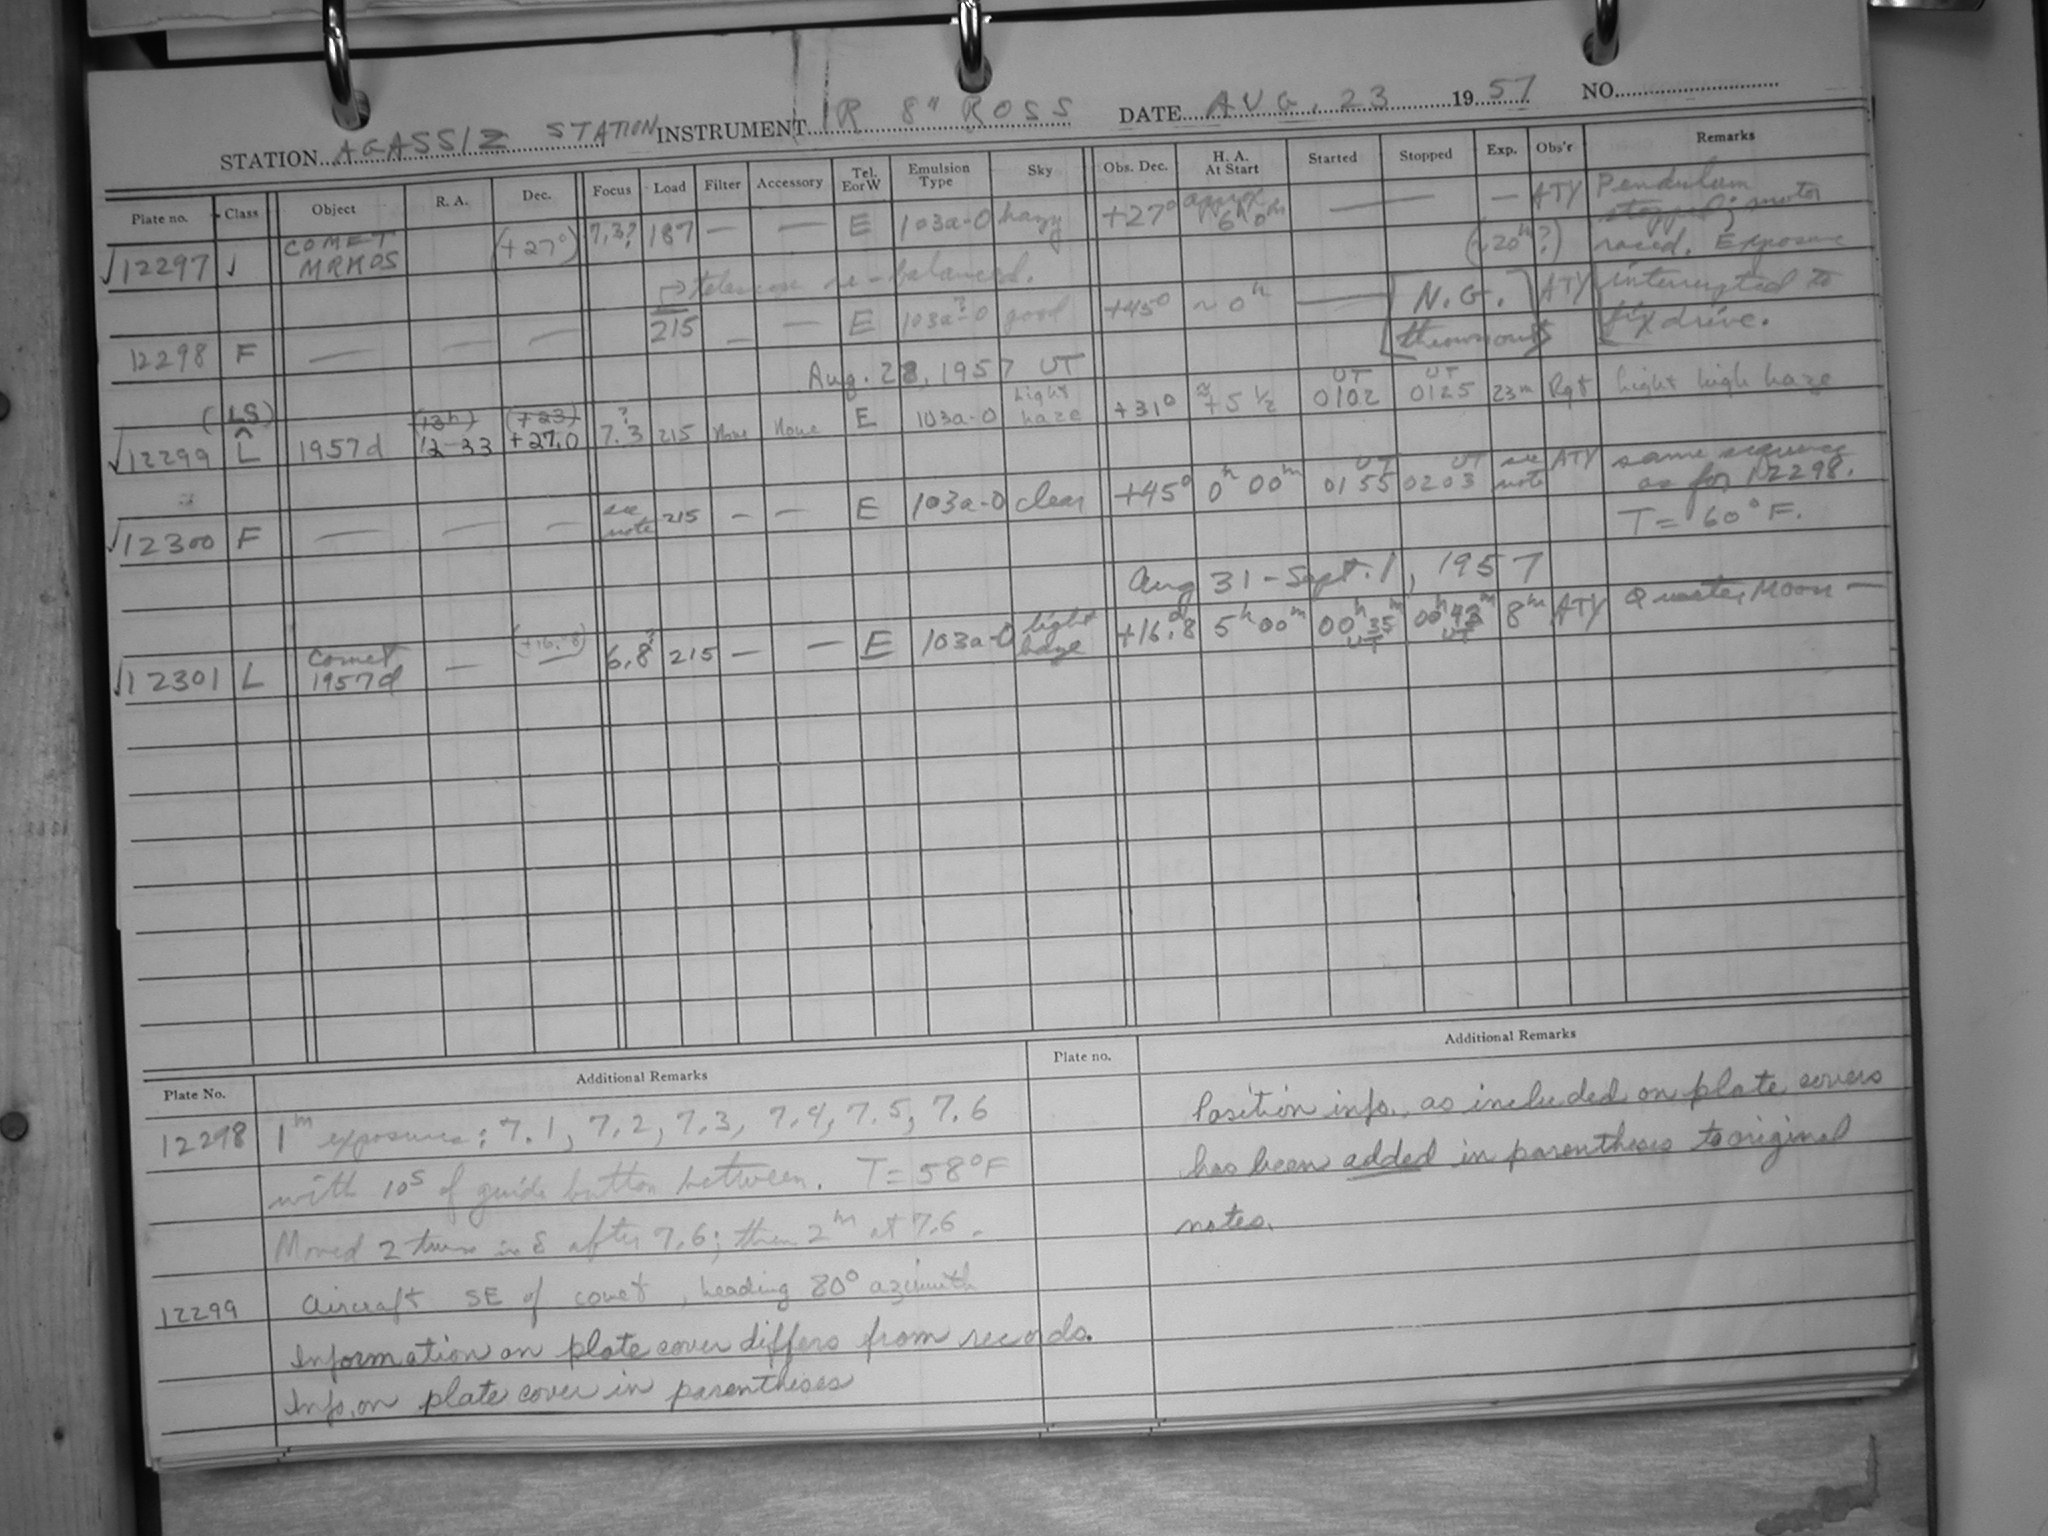 STATION AGASSIZ STATION INSTRUMENT IR 8" ROSS DATE AUG. 23 1957 NO.
Plate no. Class Object R. A. Dec. Focus Load Filter Accessory Tel. E or W Emulsion Type Sky Obs. Dec. H. A. At Start Started Stopped Exp. Obs'r Remarks
√12297 √ COMET MRKOS (+27°) 7.3? 187 — — E 103a-O hazy +27° approx 6h 0m — — — ATY Pendulum
stopped; motor
(~20h?) raced. Exposure
→ telescope re-balanced.
12298 F — — — 215 — — E 103a-O? good +45° ~0h — [N.G. thrown out] ATY interrupted to
fix drive.
Aug. 28, 1957 UT
√12299 (LS) L 1957d (13h) 12-33 (+23) +27.0 7.3? 215 None None E 103a-O light haze +31° ≈+5 1/2 UT 0102 UT 0125 23m Rqt light high haze
√12300 F — — — see note 215 — — E 103a-O clear +45° 0h 00m UT 0155 UT 0203 see note ATY same sequence
as for 12298.
T = 60°F.
Aug 31 - Sept. 1, 1957
√12301 L Comet 1957d — (+16.8) — 6.8? 215 — — E 103a-O light haze +16.8 5h 00m 00h 35m UT 00h 43m UT 8m ATY Quarter Moon —
Plate No. Additional Remarks
12298 1m exposures: 7.1, 7.2, 7.3, 7.4, 7.5, 7.6
with 10s of guide button between. T = 58°F
Moved 2 turns in δ after 7.6; then 2m at 7.6.
12299 Aircraft SE of comet, heading 80° azimuth
Information on plate cover differs from records.
Info. on plate cover in parentheses
Plate no. Additional Remarks
Position info., as included on plate covers
has been added in parentheses to original
notes.